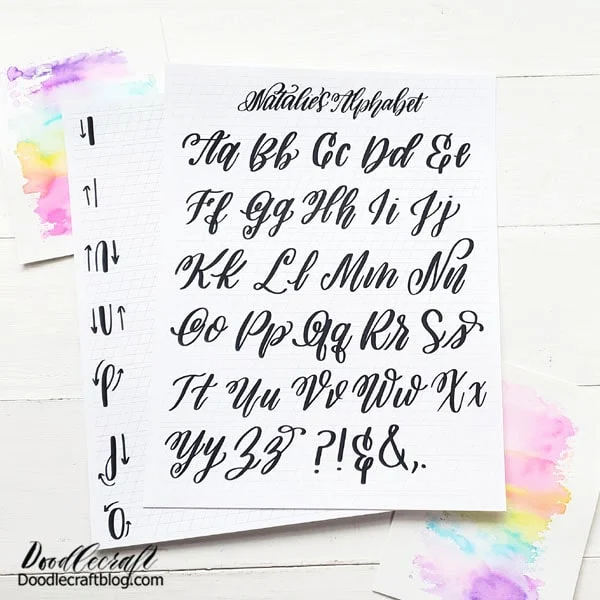 Natalie's Alphabet
Aa Bb Cc Dd Ee
Ff Gg Hh Ii Jj
Kk Ll Mm Nn
Oo Pp Qq Rr Ss
Tt Uu Vv Ww Xx
Yy Zz ?!&&,.
Doodlecraft
Doodlecraftblog.com